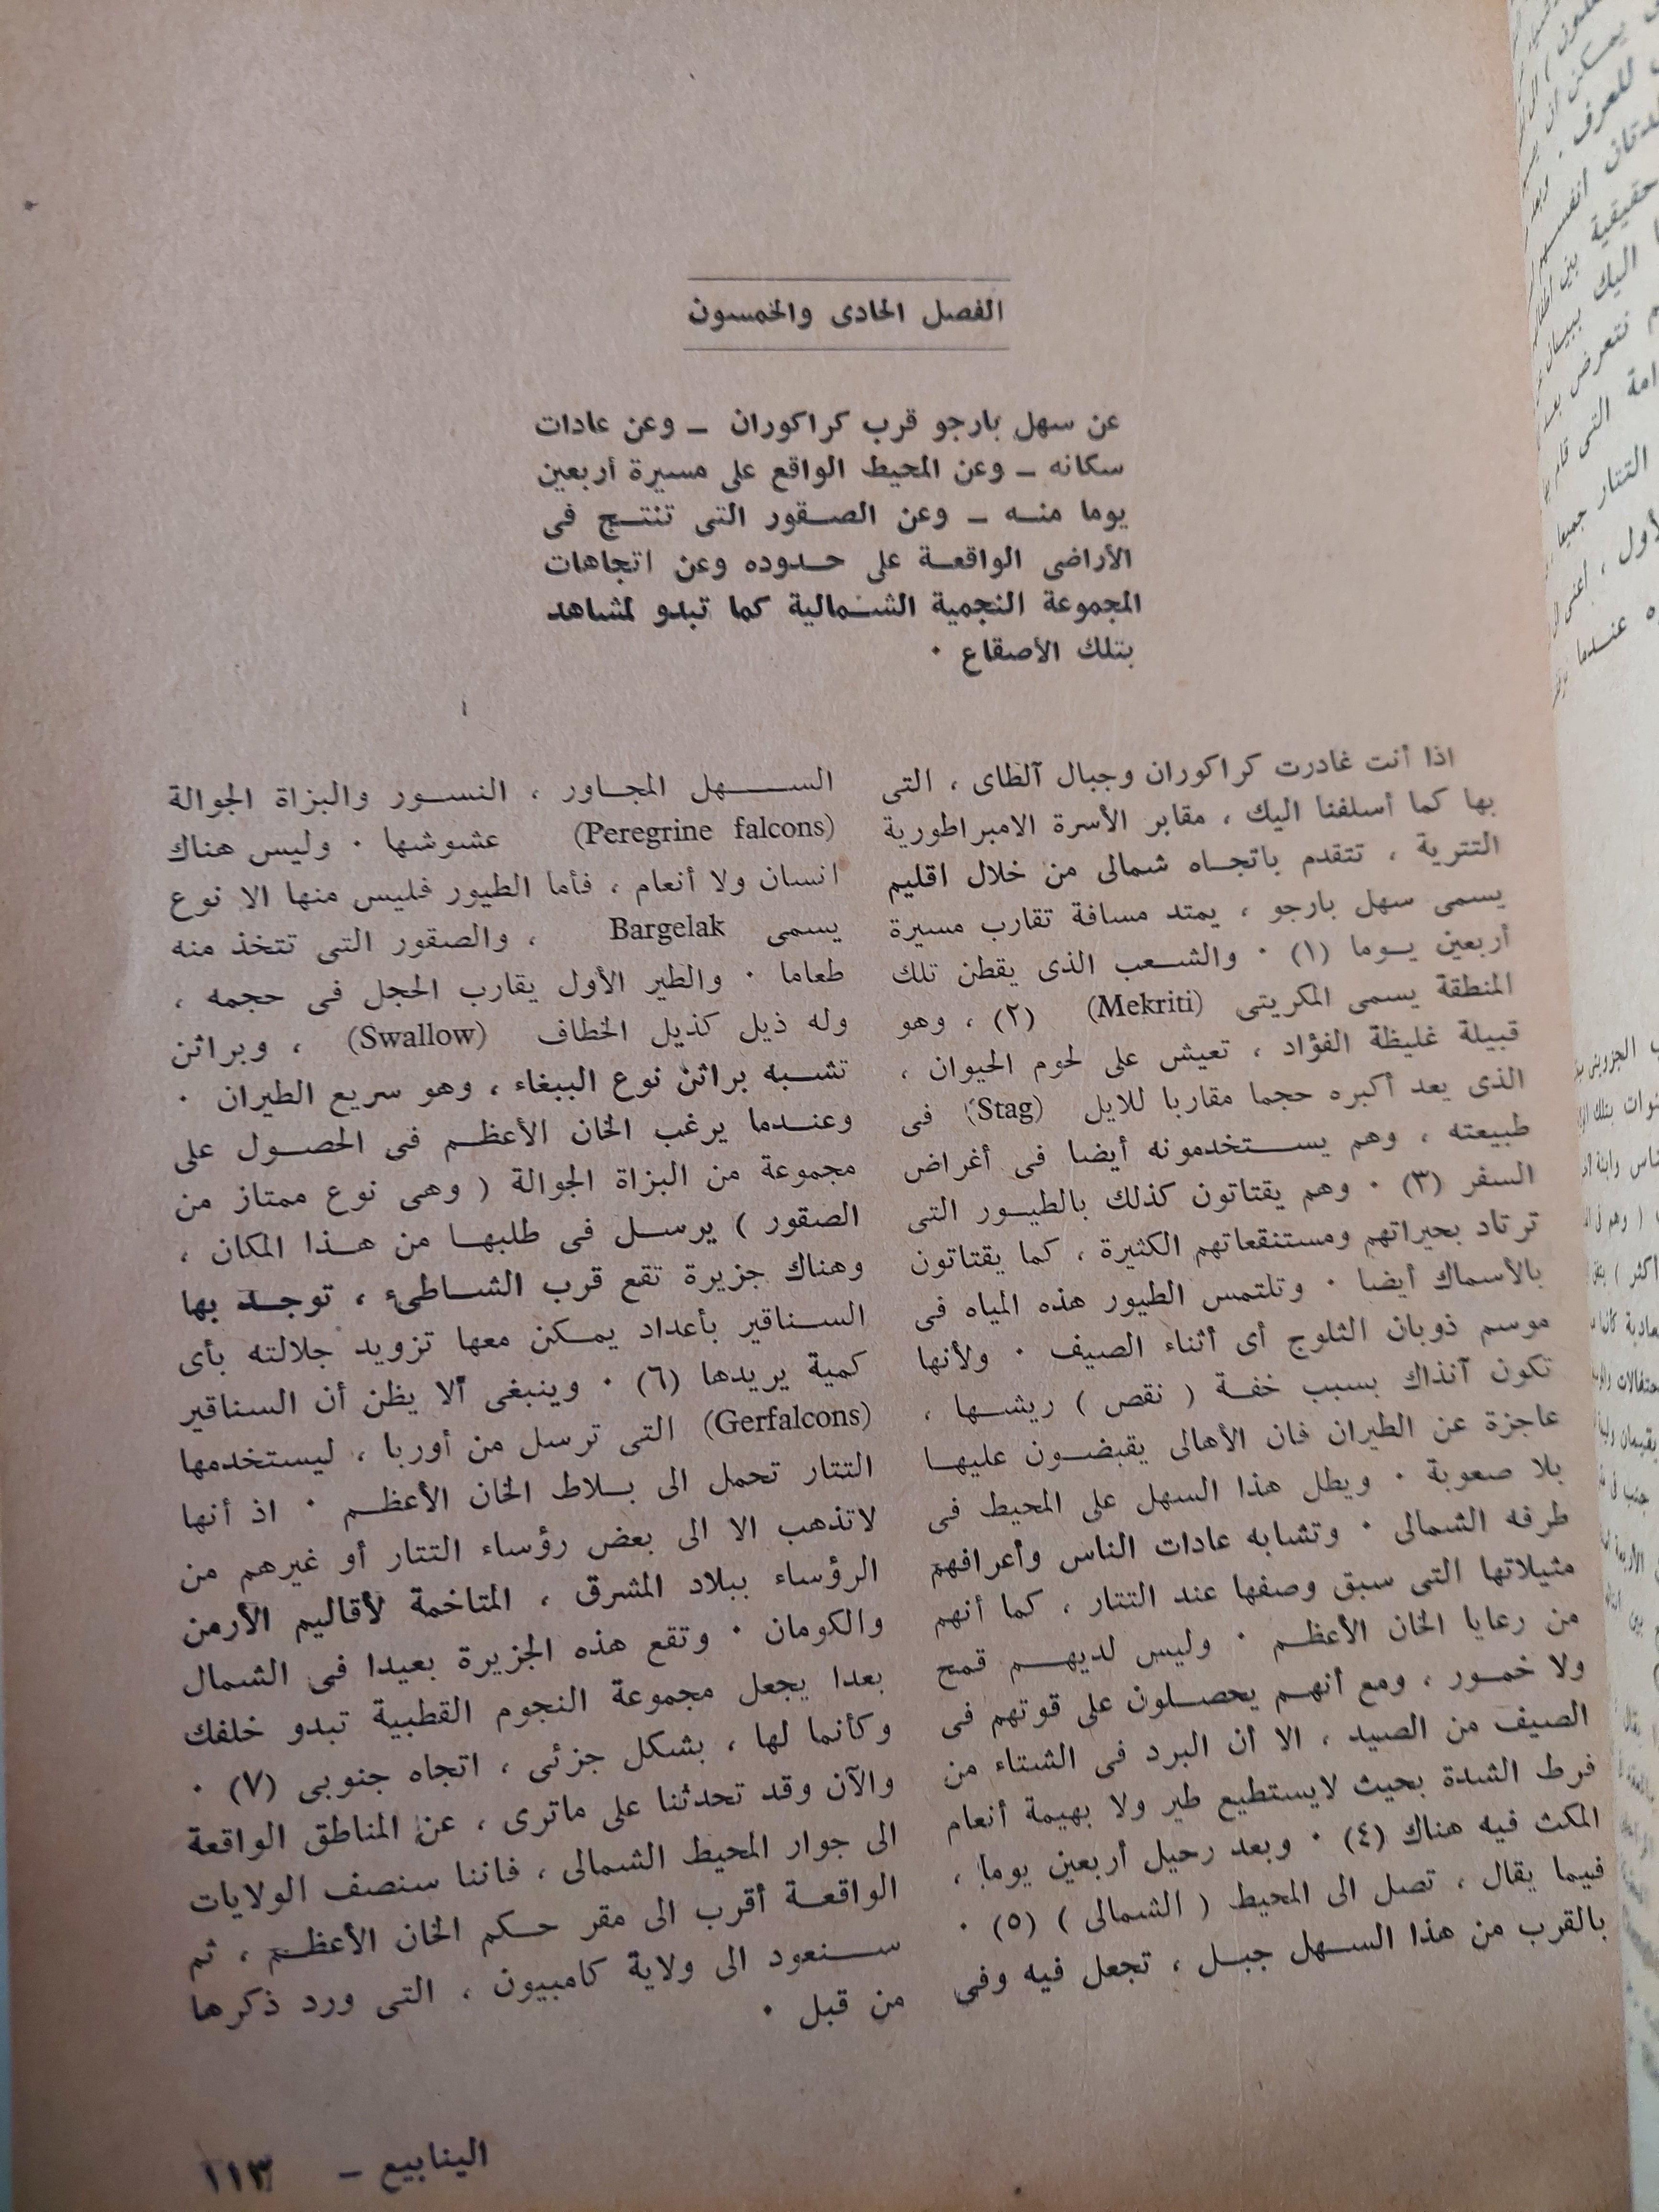 الفصل الحادى والخمسون
عن سهل بارجو قرب كراكوران ــ وعن عادات
سكانه ــ وعن المحيط الواقع على مسيرة أربعين
يوما منه ــ وعن الصقور التى تنتج فى
الأراضى الواقعة على حدوده وعن اتجاهات
المجموعة النجمية الشمالية كما تبدو لمشاهد
بتلك الأصقاع ٠
اذا أنت غادرت كراكوران وجبال آلطاى ، التى
بها كما أسلفنا اليك ، مقابر الأسرة الامبراطورية
التترية ، تتقدم باتجاه شمالى من خلال اقليم
يسمى سهل بارجو ، يمتد مسافة تقارب مسيرة
أربعين يوما (١) ٠ والشعب الذى يقطن تلك
المنطقة يسمى المكريتى (Mekriti) (٢) ، وهو
قبيلة غليظة الفؤاد ، تعيش على لحوم الحيوان ،
الذى يعد أكبره حجما مقاربا للايل (Stag) فى
طبيعته ، وهم يستخدمونه أيضا فى أغراض
السفر (٣) ٠ وهم يقتاتون كذلك بالطيور التى
ترتاد بحيراتهم ومستنقعاتهم الكثيرة ، كما يقتاتون
بالأسماك أيضا ٠ وتلتمس الطيور هذه المياه فى
موسم ذوبان الثلوج أى أثناء الصيف ٠ ولأنها
تكون آنذاك بسبب خفة ( نقص ) ريشها ،
عاجزة عن الطيران فان الأهالى يقبضون عليها
بلا صعوبة ٠ ويطل هذا السهل على المحيط فى
طرفه الشمالى ٠ وتشابه عادات الناس وأعرافهم
مثيلاتها التى سبق وصفها عند التتار ، كما أنهم
من رعايا الخان الأعظم ٠ وليس لديهم قمح
ولا خمور ، ومع أنهم يحصلون على قوتهم فى
الصيف من الصيد ، الا أن البرد فى الشتاء من
فرط الشدة بحيث لايستطيع طير ولا بهيمة أنعام
المكث فيه هناك (٤) ٠ وبعد رحيل أربعين يوما ،
فيما يقال ، تصل الى المحيط ( الشمالى ) (٥) ٠
بالقرب من هذا السهل جبل ، تجعل فيه وفى
السهل المجاور ، النسور والبزاة الجوالة
(Peregrine falcons) عشوشها ٠ وليس هناك
انسان ولا أنعام ، فأما الطيور فليس منها الا نوع
يسمى Bargelak ، والصقور التى تتخذ منه
طعاما ٠ والطير الأول يقارب الحجل فى حجمه ،
وله ذيل كذيل الخطاف (Swallow) ، وبراثن
تشبه براثن نوع الببغاء ، وهو سريع الطيران ٠
وعندما يرغب الخان الأعظم فى الحصول على
مجموعة من البزاة الجوالة ( وهى نوع ممتاز من
الصقور ) يرسل فى طلبها من هذا المكان ،
وهناك جزيرة تقع قرب الشاطىء ، توجد بها
السناقير بأعداد يمكن معها تزويد جلالته بأى
كمية يريدها (٦) ٠ وينبغى ألا يظن أن السناقير
(Gerfalcons) التى ترسل من أوربا ، ليستخدمها
التتار تحمل الى بلاط الخان الأعظم ٠ اذ أنها
لاتذهب الا الى بعض رؤساء التتار أو غيرهم من
الرؤساء ببلاد المشرق ، المتاخمة لأقاليم الأرمن
والكومان ٠ وتقع هذه الجزيرة بعيدا فى الشمال
بعدا يجعل مجموعة النجوم القطبية تبدو خلفك
وكأنما لها ، بشكل جزئى ، اتجاه جنوبى (٧) ٠
والآن وقد تحدثنا على ماترى ، عن المناطق الواقعة
الى جوار المحيط الشمالى ، فاننا سنصف الولايات
الواقعة أقرب الى مقر حكم الخان الأعظم ، ثم
سنعود الى ولاية كامبيون ، التى ورد ذكرها
من قبل ٠
الينابيع ــ ١١٣